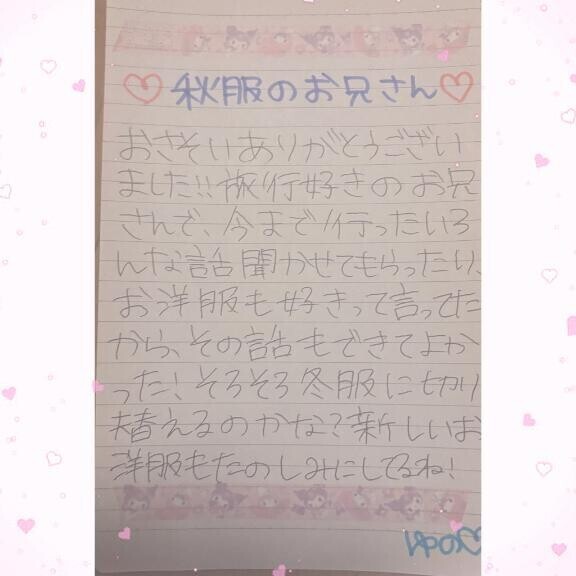 ♡秋服のお兄さん♡
おさそいありがとうござい
ました!!旅行好きのお兄
さんで、今まで行ったいろ
んな話聞かせてもらったり、
お洋服も好きって言ってた
から、その話もできてよか
った!そろそろ冬服に切り
替えるのかな?新しいお
洋服もたのしみにしてるね!
ゆの♡